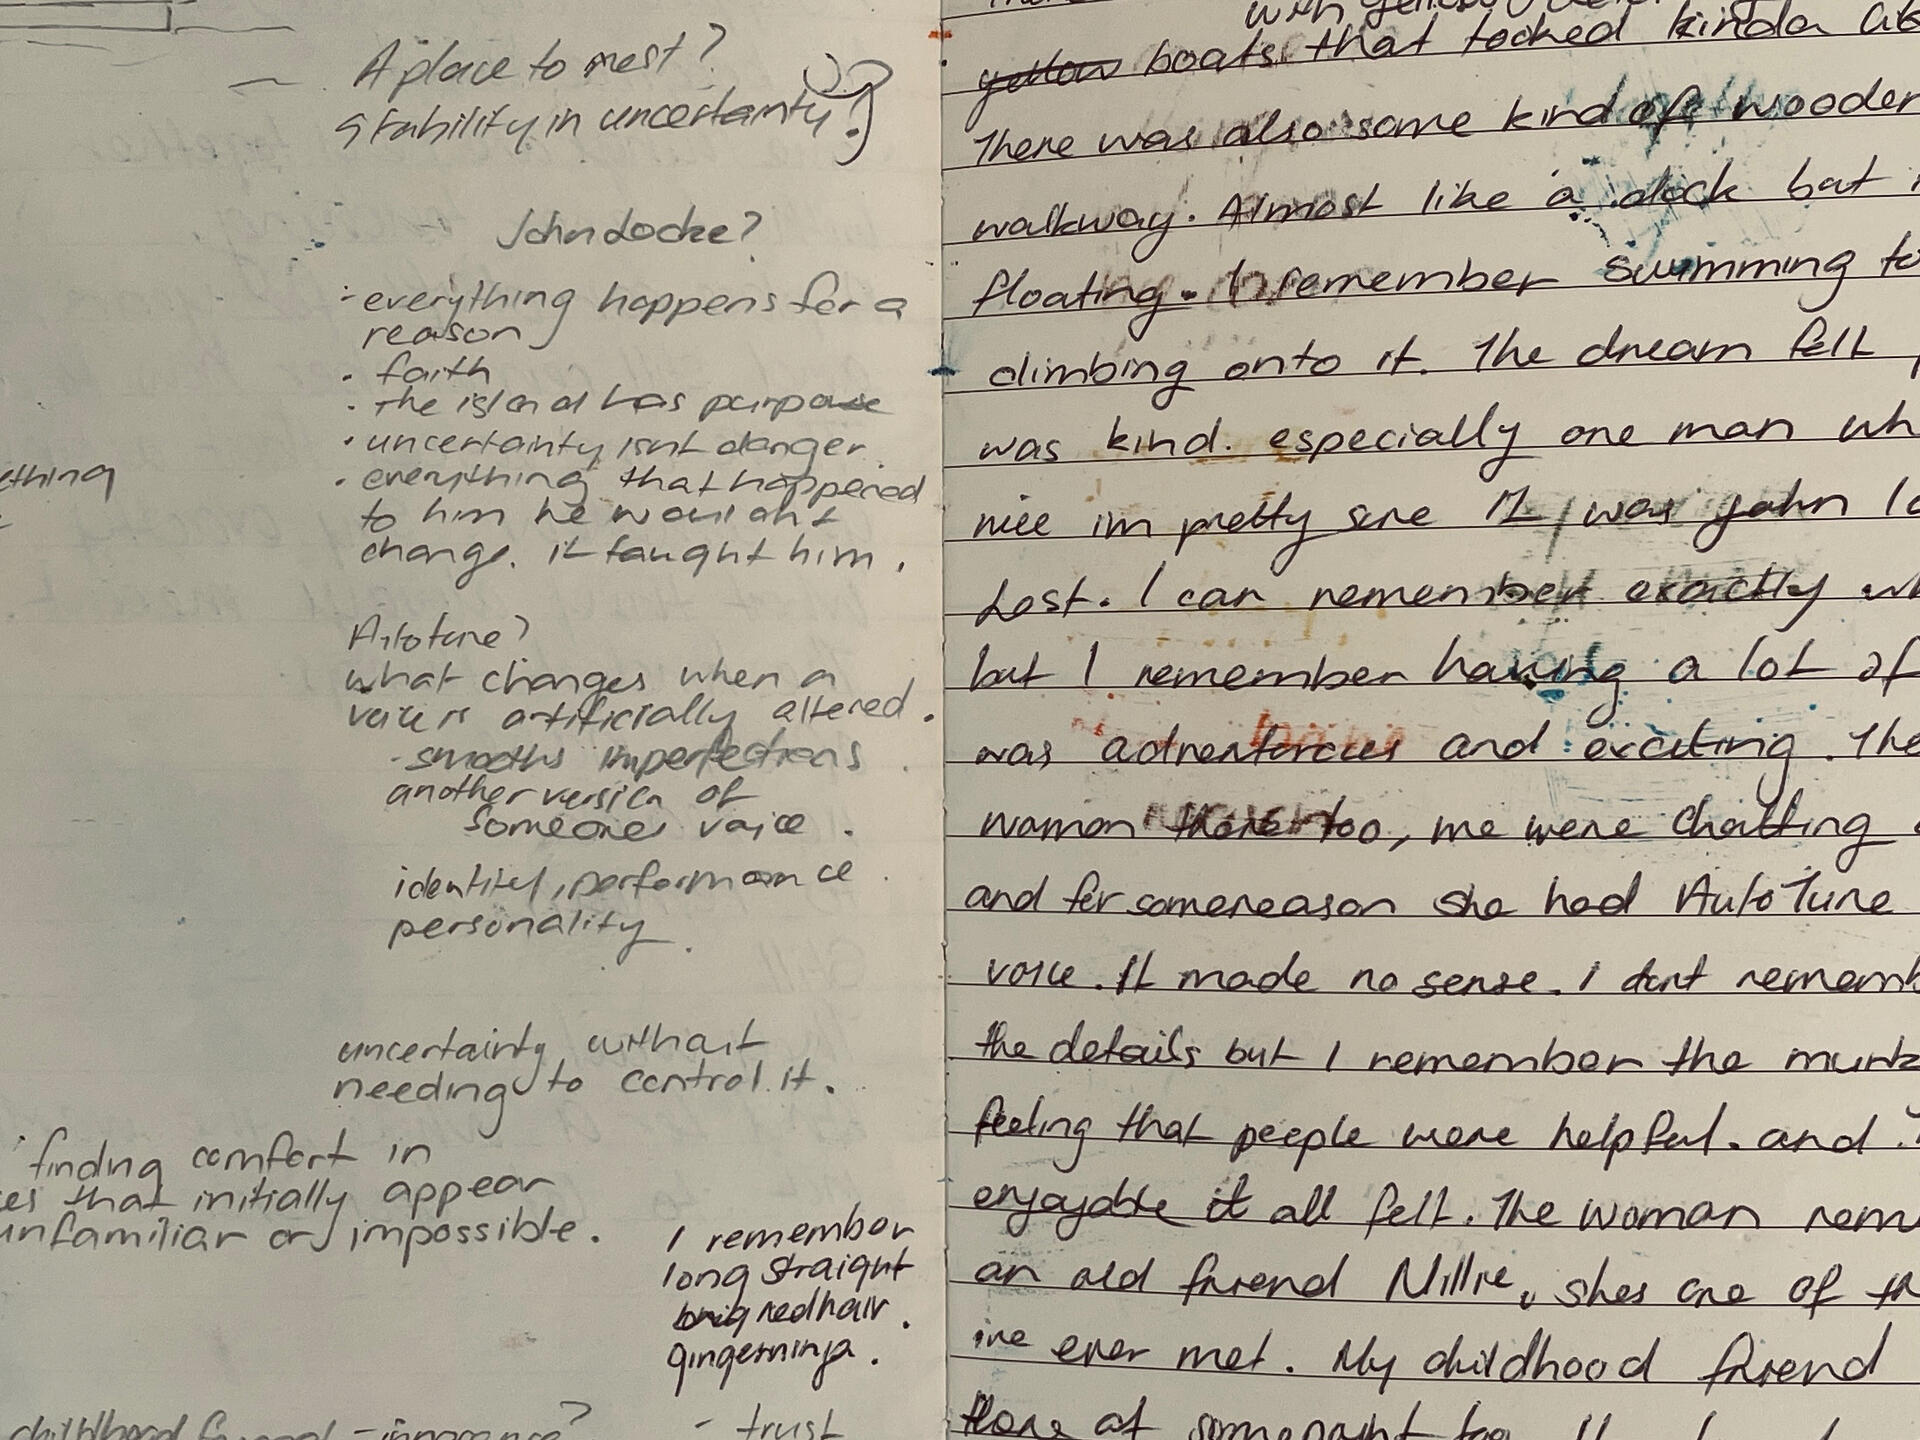 A place to rest?
stability in uncertainty?
John Locke?
· everything happens for a
reason
· faith
· the island has purpose
· uncertainty isnt danger.
· everything that happened
to him he wouldnt
change. it taught him.
ething
Autotune?
what changes when a
voice is artificially altered.
- smooths imperfections
another version of
someones voice.
identity, performance
personality.
uncertainty without
needing to control it.
finding comfort in
es that initially appear
unfamiliar or impossible.
I remember
long straight
red hair.
gingerninja.
childhood friend - innocence?
- trust
with yellow
yellow boats that looked kinda
There was also some kind of wooden
walkway. Almost like a dock but
floating. I remember swimming to
climbing onto it. The dream felt
was kind. especially one man wh
nice im pretty sure it was john lo
Lost. I can remember exactly wh
but I remember having a lot of
was adventurous and exciting. The
woman there too, we were chatting
and for somereason she had AutoTune
voice. It made no sense. I dont rememb
the details but I remember the
feeling that people were helpful. and
enjoyable it all felt. The woman rem
an old friend Millie, shes one of th
ive ever met. My childhood friend
there at somepoint too.